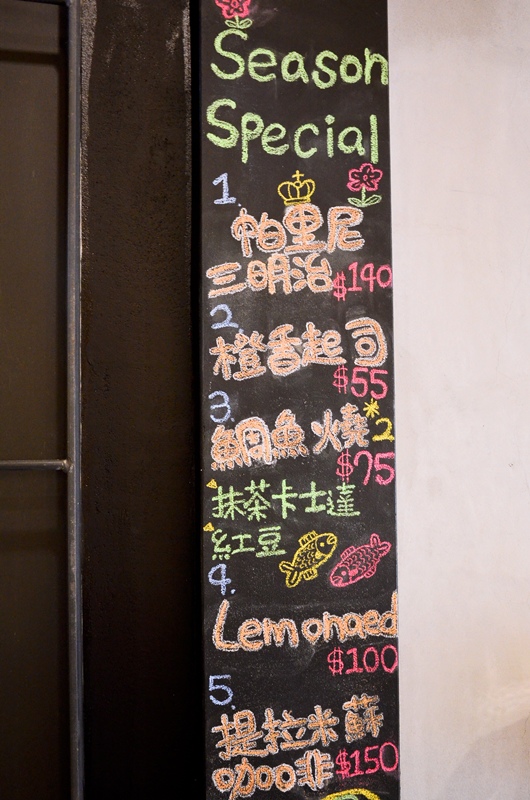 Season
Special
1.
帕里尼
三明治 $140
2.
橙香起司
$55
3.
鯛魚燒*2
$75
抹茶卡士達
紅豆
4.
Lemonaed
$100
5.
提拉米蘇
咖啡 $150